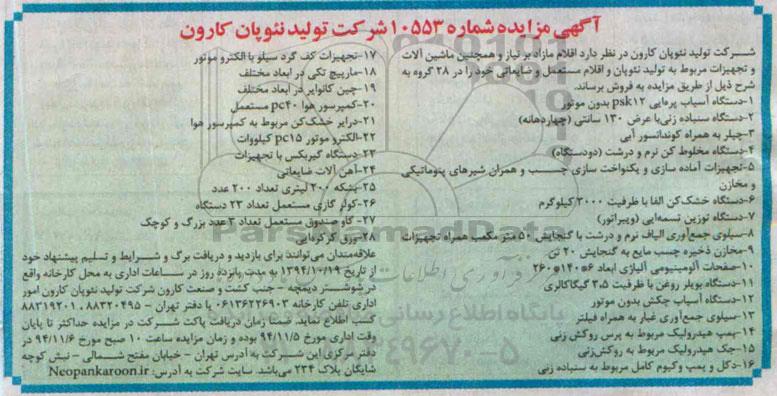 آگهی مزایده شماره ۱۰۵۵۳ شرکت تولید نئوپان کارون
شرکت تولید نئوپان کارون در نظر دارد اقلام مازاد بر نیاز و همچنین ماشین آلات
و تجهیزات مربوط به تولید نئوپان و اقلام مستعمل و ضایعاتی خود را در ۲۸ گروه به
شرح ذیل از طریق مزایده به فروش برساند.
۱-دستگاه آسیاب پره‌ایی psk۱۲ بدون موتور
۲-دستگاه سنباده زنی با عرض ۱۳۰ سانتی (چهاردهانه)
۳-چیلر به همراه کوندانسور آبی
۴-دستگاه مخلوط کن نرم و درشت (دودستگاه)
۵-تجهیزات آماده سازی و یکنواخت سازی چسب و همزان شیرهای پنوماتیکی
و مخازن
۶-دستگاه خشک‌کن الفا با ظرفیت ۳۰۰۰ کیلوگرم
۷-دستگاه توزین تسمه‌ایی (ویبراتور)
۸-سیلوی جمع‌آوری الیاف نرم و درشت با گنجایش ۵۰ متر مکعب همراه تجهیزات
۹-مخازن ذخیره چسب مایع به گنجایش ۲۰ تن
۱۰-صفحات آلومینیومی آلیاژی ابعاد ۶*۱۴۰*۲۶۰
۱۱-دستگاه بویلر روغن با ظرفیت ۳,۵ گیگاکالری
۱۲-دستگاه آسیاب چکش بدون موتور
۱۳-سیلوی جمع‌آوری غبار به همراه فیلتر
۱۴-پمپ هیدرولیک مربوط به پرس روکش زنی
۱۵-جک هیدرولیک مربوط به روکش‌زنی
۱۶-دکل و پمپ وکیوم کامل مربوط به سنباده زنی
۱۷-تجهیزات کف گرد سیلو با الکترو موتور
۱۸-مارپیچ تکی در ابعاد مختلف
۱۹-چین کانوایر در ابعاد مختلف
۲۰-کمپرسور هوا pc۴۰ مستعمل
۲۱-درایر خشک‌کن مربوط به کمپرسور هوا
۲۲-الکترو موتور pc۱۵ کیلووات
۲۳-دستگاه گیربکس با تجهیزات
۲۴-آهن آلات ضایعاتی
۲۵-بشکه ۲۰۰ لیتری تعداد ۲۰۰ عدد
۲۶-کولر گازی مستعمل تعداد ۲۳ دستگاه
۲۷- گاو صندوق مستعمل تعداد ۳ عدد بزرگ و کوچک
۲۸-ورق کرکره‌ایی
علاقه‌مندان می‌توانند برای بازدید و دریافت برگ و شرایط و تسلیم پیشنهاد خود
از تاریخ ۱۳۹۴/۱۰/۱۹ به مدت پانزده روز در ساعات اداری به محل کارخانه واقع
در شوشتر دیمچه - جنب کشت و صنعت کارون شرکت تولید نئوپان کارون امور
اداری تلفن کارخانه ۰۶۱۳۶۲۲۶۹۰۳ یا دفتر تهران - ۸۸۳۲۰۴۹۵ - ۸۸۳۱۹۲۰۱
کسب اطلاع نمایند. ضمنا زمان دریافت پاکت شرکت در مزایده حداکثر تا پایان
وقت اداری مورخ ۹۴/۱۱/۵ بوده و زمان مزایده ساعت ۱۰ صبح مورخ ۹۴/۱۱/۶ در
دفتر مرکزی این شرکت به آدرس تهران - خیابان مفتح شمالی - نبش کوچه
شایگان پلاک ۲۳۴ می‌باشد. سایت شرکت به آدرس: Neopankaroon.ir
ParsNamadData